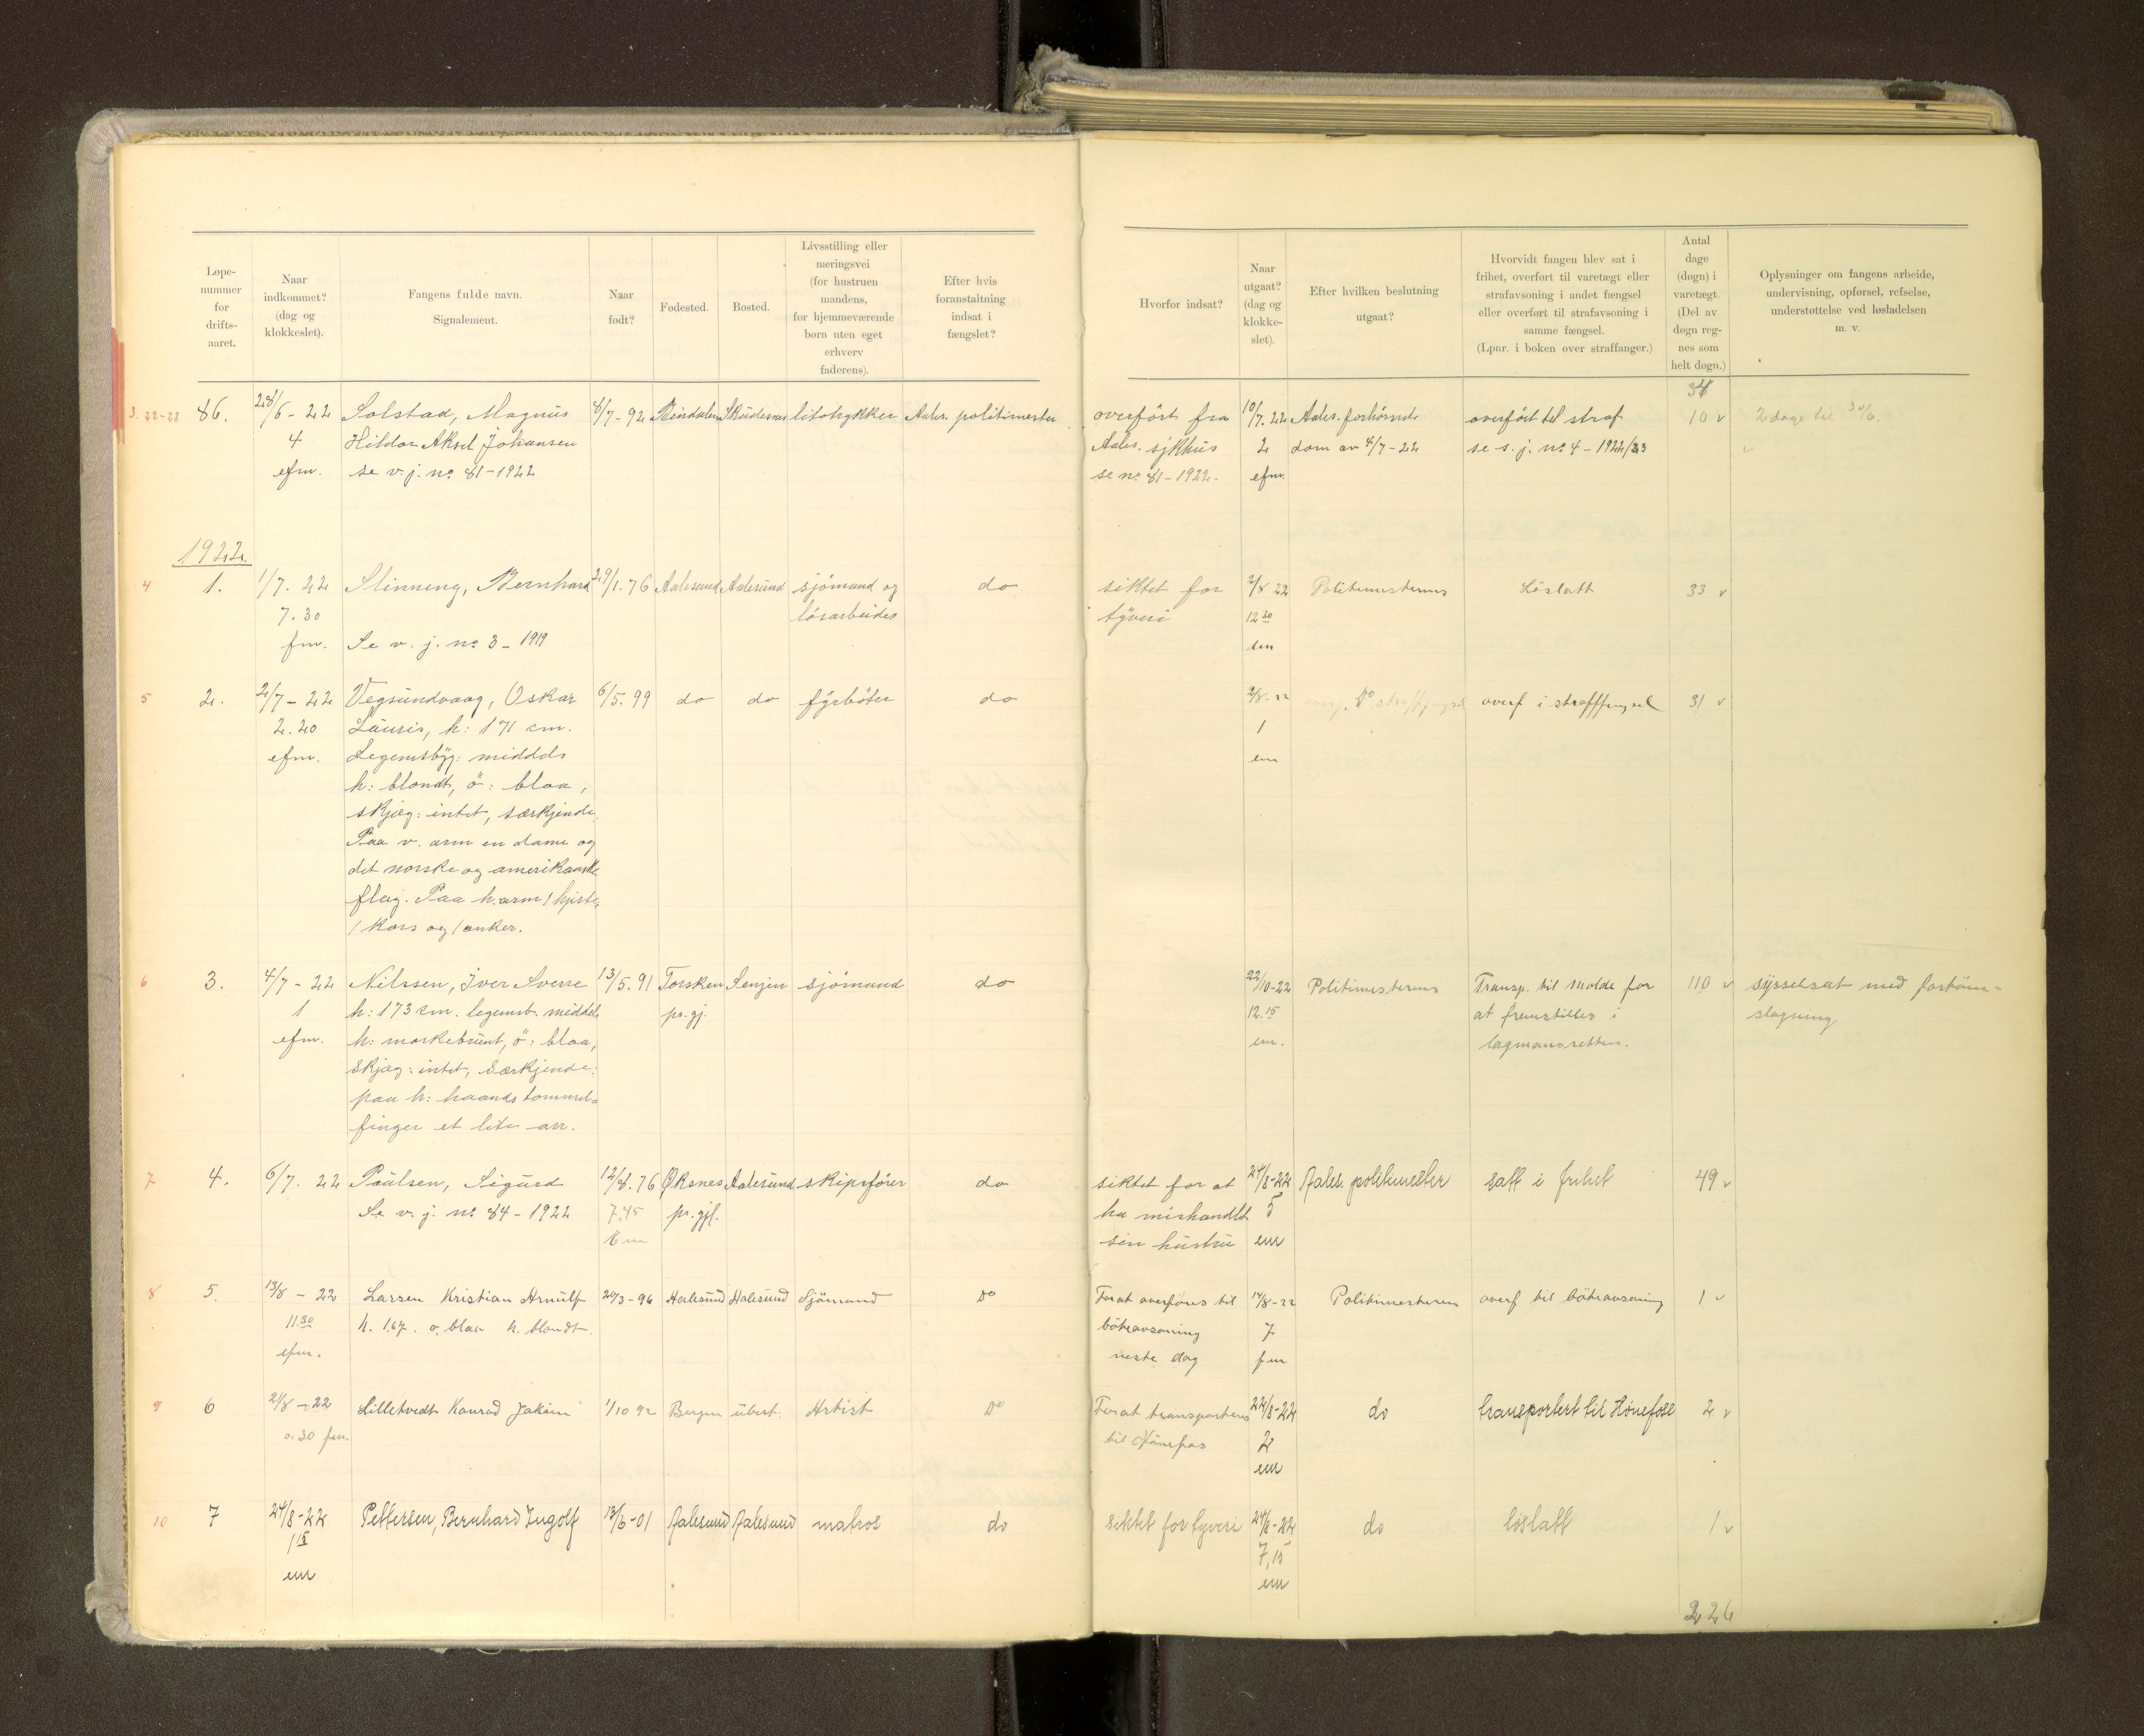 Løpe-
nummer
for
drifts-
aaret.
Naar
indkommet?
(dag og
klokkeslet).
Fangens fulde navn.
Signalement.
Naar
født?
Fødested.
Bosted.
Livsstilling eller
næringsvei
(for hustruen
mandens,
for hjemmeværende
børn uten eget
erhverv
faderens).
Efter hvis
foranstaltning
indsat i
fængslet?
Hvorfor indsat?
Naar
utgaat?
(dag og
klokke-
slet).
Efter hvilken beslutning
utgaat?
Hvorvidt fangen blev sat i
frihet, overført til varetægt eller
strafavsoning i andet fængsel
eller overført til strafavsoning i
samme fængsel.
(Lpnr. i boken over straffanger.)
Antal
dage
(døgn) i
varetægt.
(Del av
døgn reg-
nes som
helt døgn.)
Oplysninger om fangens arbeide,
undervisning, opførsel, refselse,
understøttelse ved løsladelsen
m. v.
3. 22-23 86. 28/6 - 22 Solstad, Magnus 8/7 - 92 Bindalen Skudesnes litotrykker Aales. politimester overført fra 10/7. 22 Aales. forhørsrets overført til straf 10 v 2 dage til 30/6.
4 Hildor Aksel Johansen Aales. sykhus 2 dom av 4/7 - 22 se s. j. no 4 - 1922/23
efm. se v. j. no 81 - 1922 se no 81 - 1922. efm.
1922.
4 1. 1/7. 22 Slinning, Bernhard 29/1. 76 Aalesund Aalesund sjömand og do siktet for 2/8 22 Politimesterens Löslatt 33 v
7.30 lösarbeider tyveri 12 30
fm. Se v. j. no 3 - 1919 em
5 2. 2/7 - 22 Vegsundvaag, Oskar 6/5. 99 do do fyrböter do 2/8 - 22 do overf i strafffengsel 31 v
2.20 Lauris, h: 171 cm. 1
efm. Legemsbyg: middels em
h: blondt, ö: blaa,
skjæg: intet, særkjende:
Paa v. arm en dame og
det norske og amerikanske
flag. Paa h. arm 1 hjerte,
1 kors og 1 anker.
6 3. 4/7 - 22 Nilssen, Iver Sverre 13/5. 91 Torsken Senjen sjömand do 22/10-22 Politimesterens Transp. til Molde for 110 v sysselsat med fortöm-
1 h: 173 cm. legemsb. middels pr. gj. 12.15 at fremstilles i slagning
efm. h: mørkebrunt, ö: blaa, em. lagmansretten.
skjæg: intet, særkjende:
paa h: haands tommel-
finger et lite arr.
7 4. 6/7. 22 Paulsen, Sigurd 12/8. 76 Øksnes Aalesund skipsfører do siktet for at 24/8-22 Aales. politimester satt i frihet 49 v
Se v. j. no 84 - 1922 7,45 pr. gjf. ha mishandlet 5
em sin hustru em
8 5. 13/8 - 22 Larsen Kristian Arnulf 20/3-96 Aalesund Aalesund Sjömand Do For at overføres til 14/8-22 Politimesteren overf til böteavsoning 1 v
11.30 h. 1,67. ö. blaa h. blondt. böteavsoning 7
efm. neste dag fm
9 6 21/8 - 22 Lilletvedt Konrad Jakim 1/10 92 Bergen ubest. Artist Do For at transporteres 22/8-22 do transportert til Hönefoss 2 v
0.30 fm. til Hönefos 2
em
10 7 24/8-22 Pettersen, Bernhard Ingolf 13/6-01 Aalesund Aalesund matros do siktet for tyveri 24/8-22 do löslatt 1 v
1 15 7,15
em em
226